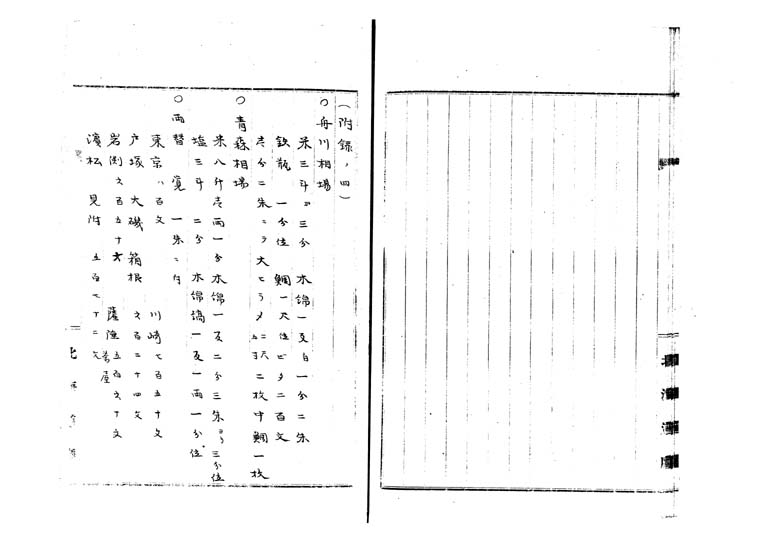 (附録ノ四)
〇舟川相場
米三斗ヨ三分 木綿一反自一分二朱
鉄瓶 一分位 鯛一尺位ヒタ二百文
壱分二朱ニテ大ヒラメ 二枚中鯛一枚
〇青森相場
米八升壱両一分 木綿一反二分三朱ヨリ三分位
塩三斗 二分 木綿縞一反一両一分位
〇両替 覚 一朱ニ付
東京 八百文 川崎七百五十文
戸塚 大磯 箱根 六百二十四文
岩渕六百五十六 薩陲 五百六十文
濱松 見附 五百七十二文